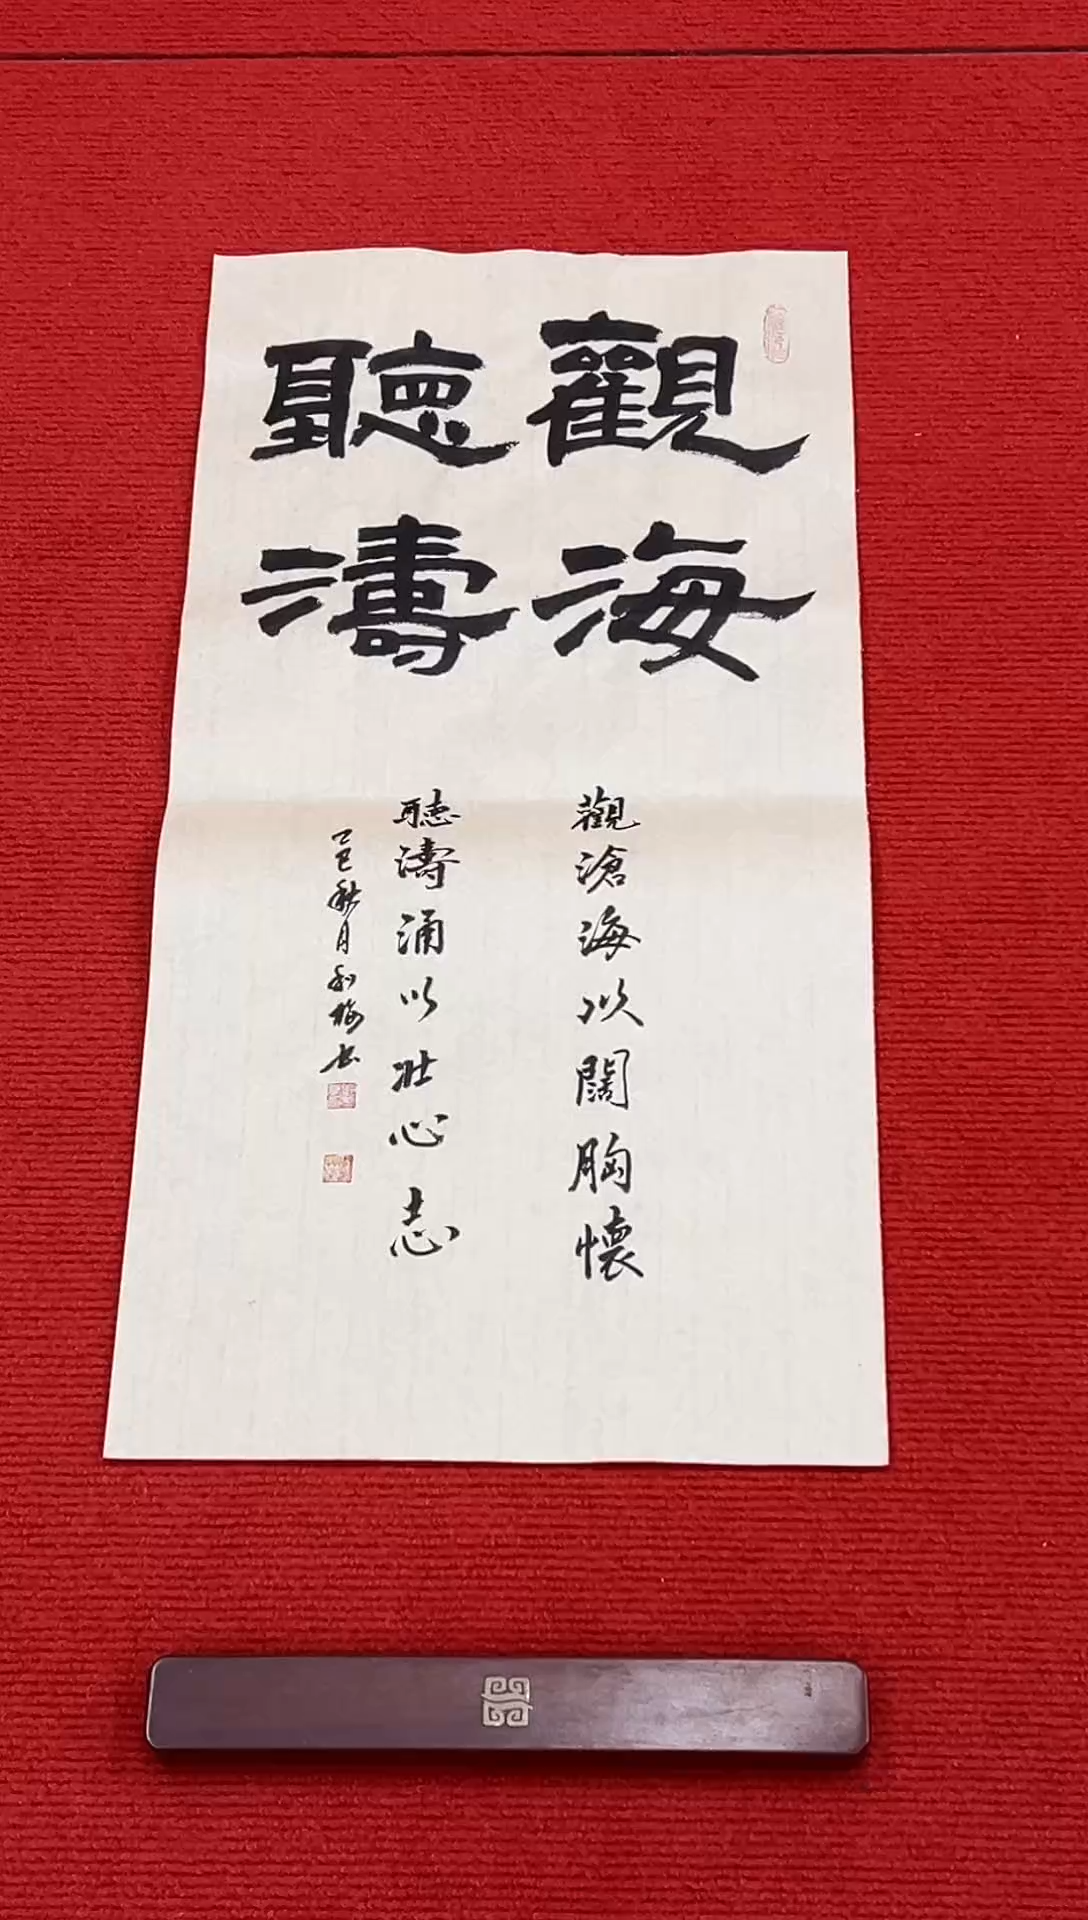 觀海
聽濤
觀滄海以闊胸懷
聽濤涌以壯心志
乙巳秋月利梅書